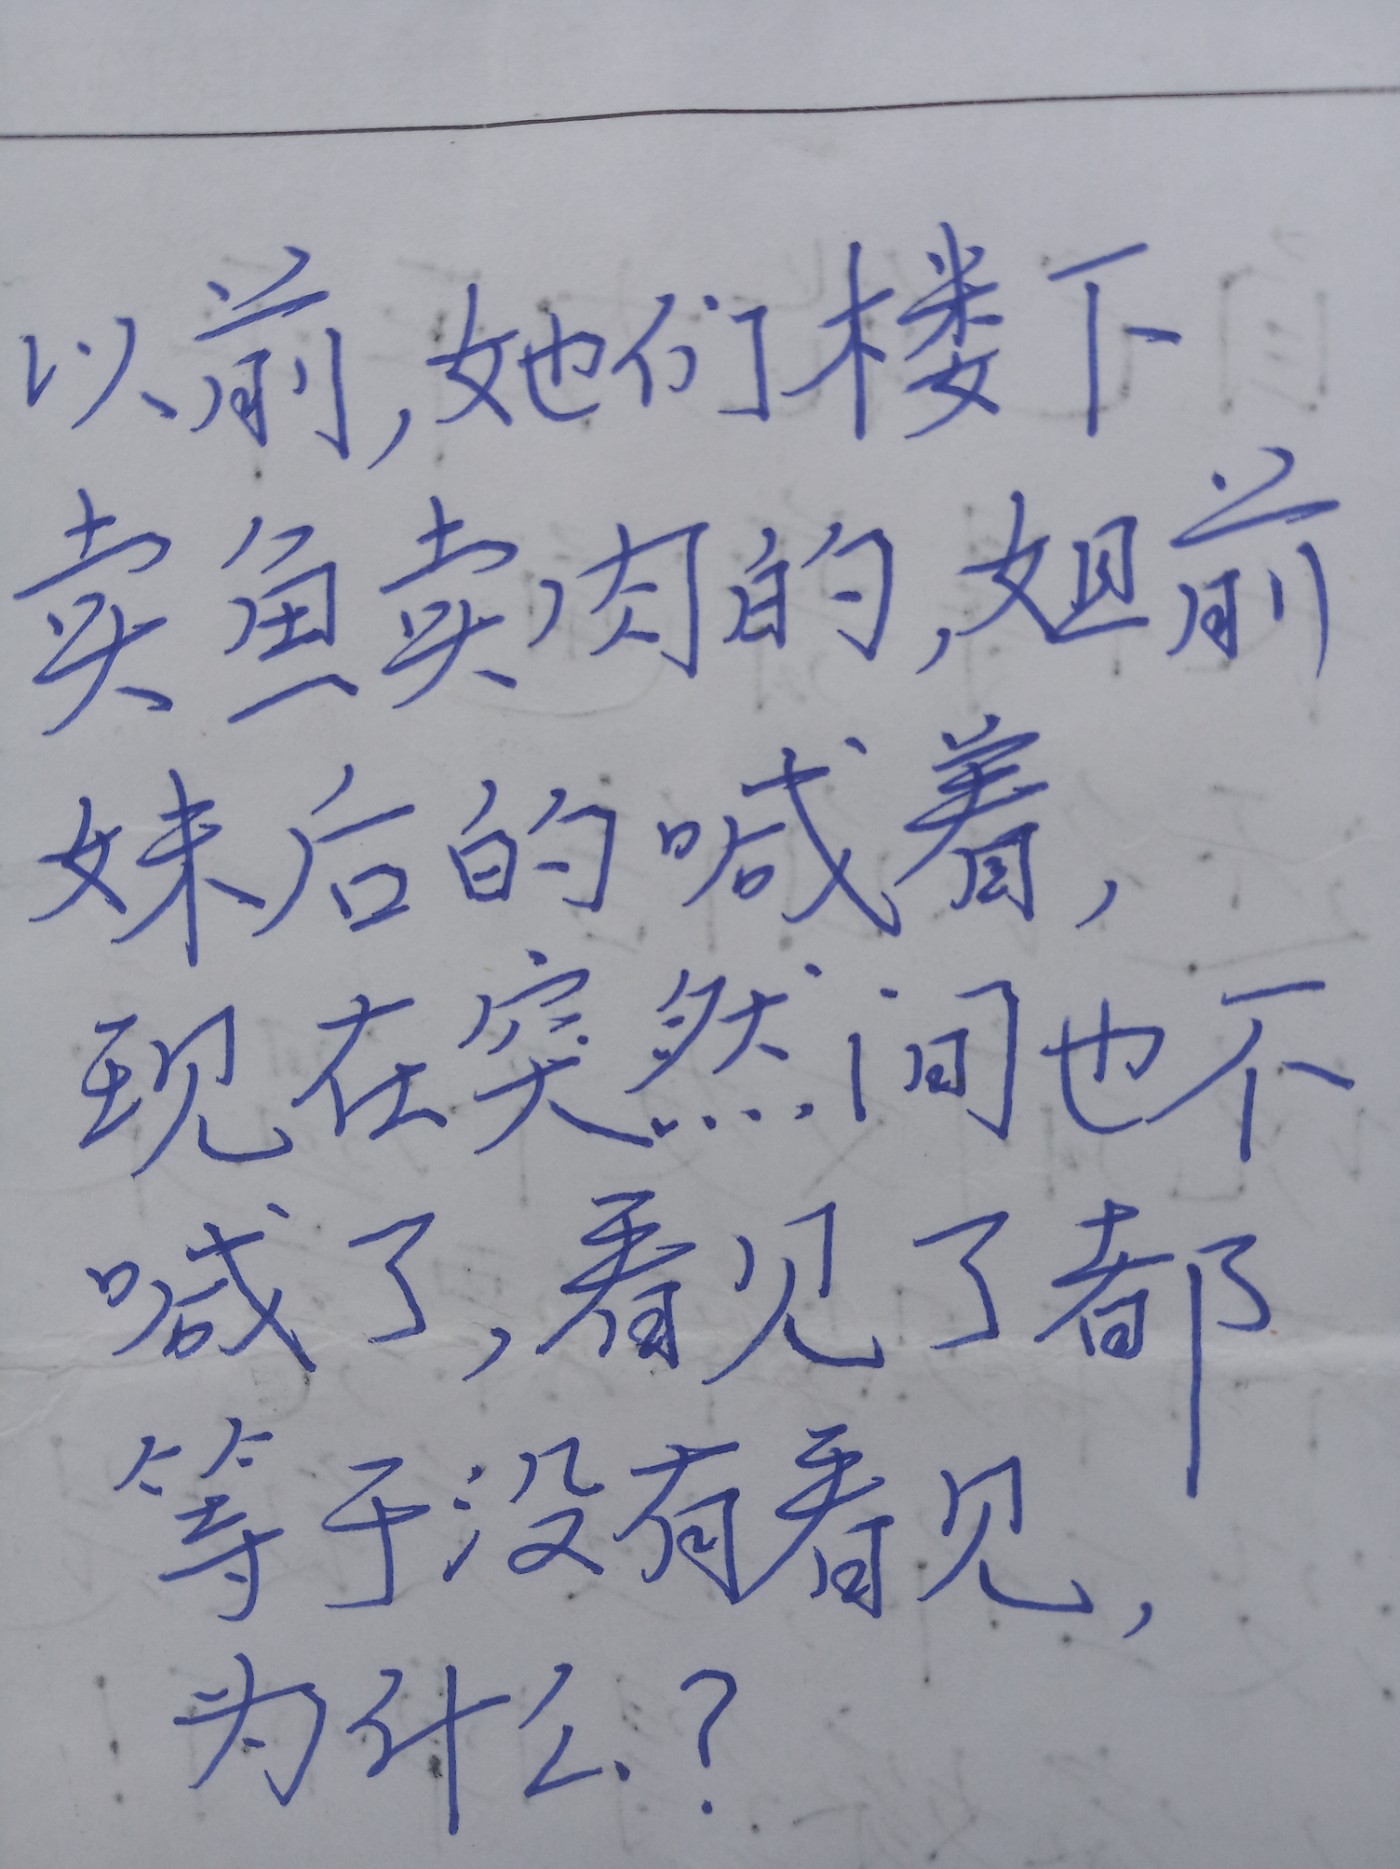 以前,她们楼下
卖鱼卖肉的,姐前
妹后的喊着,
现在突然间也不
喊了,看见了都
等于没有看见,
为什么?